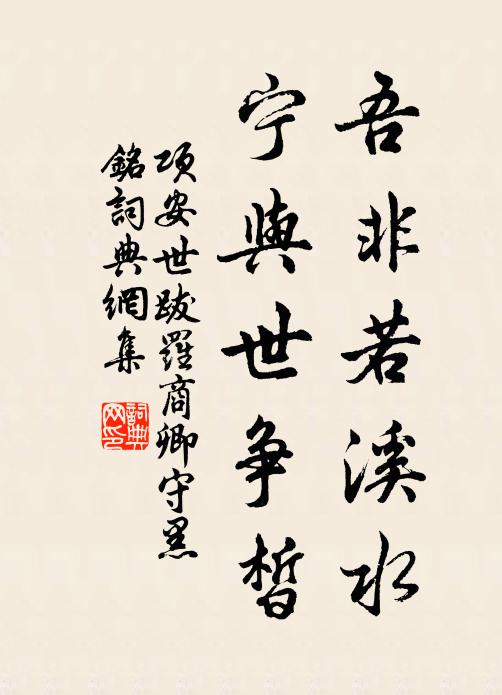 吾非若溪水
宁與世争皙
項安世跋羅商卿守黑
銘詞典網集
詞典网印